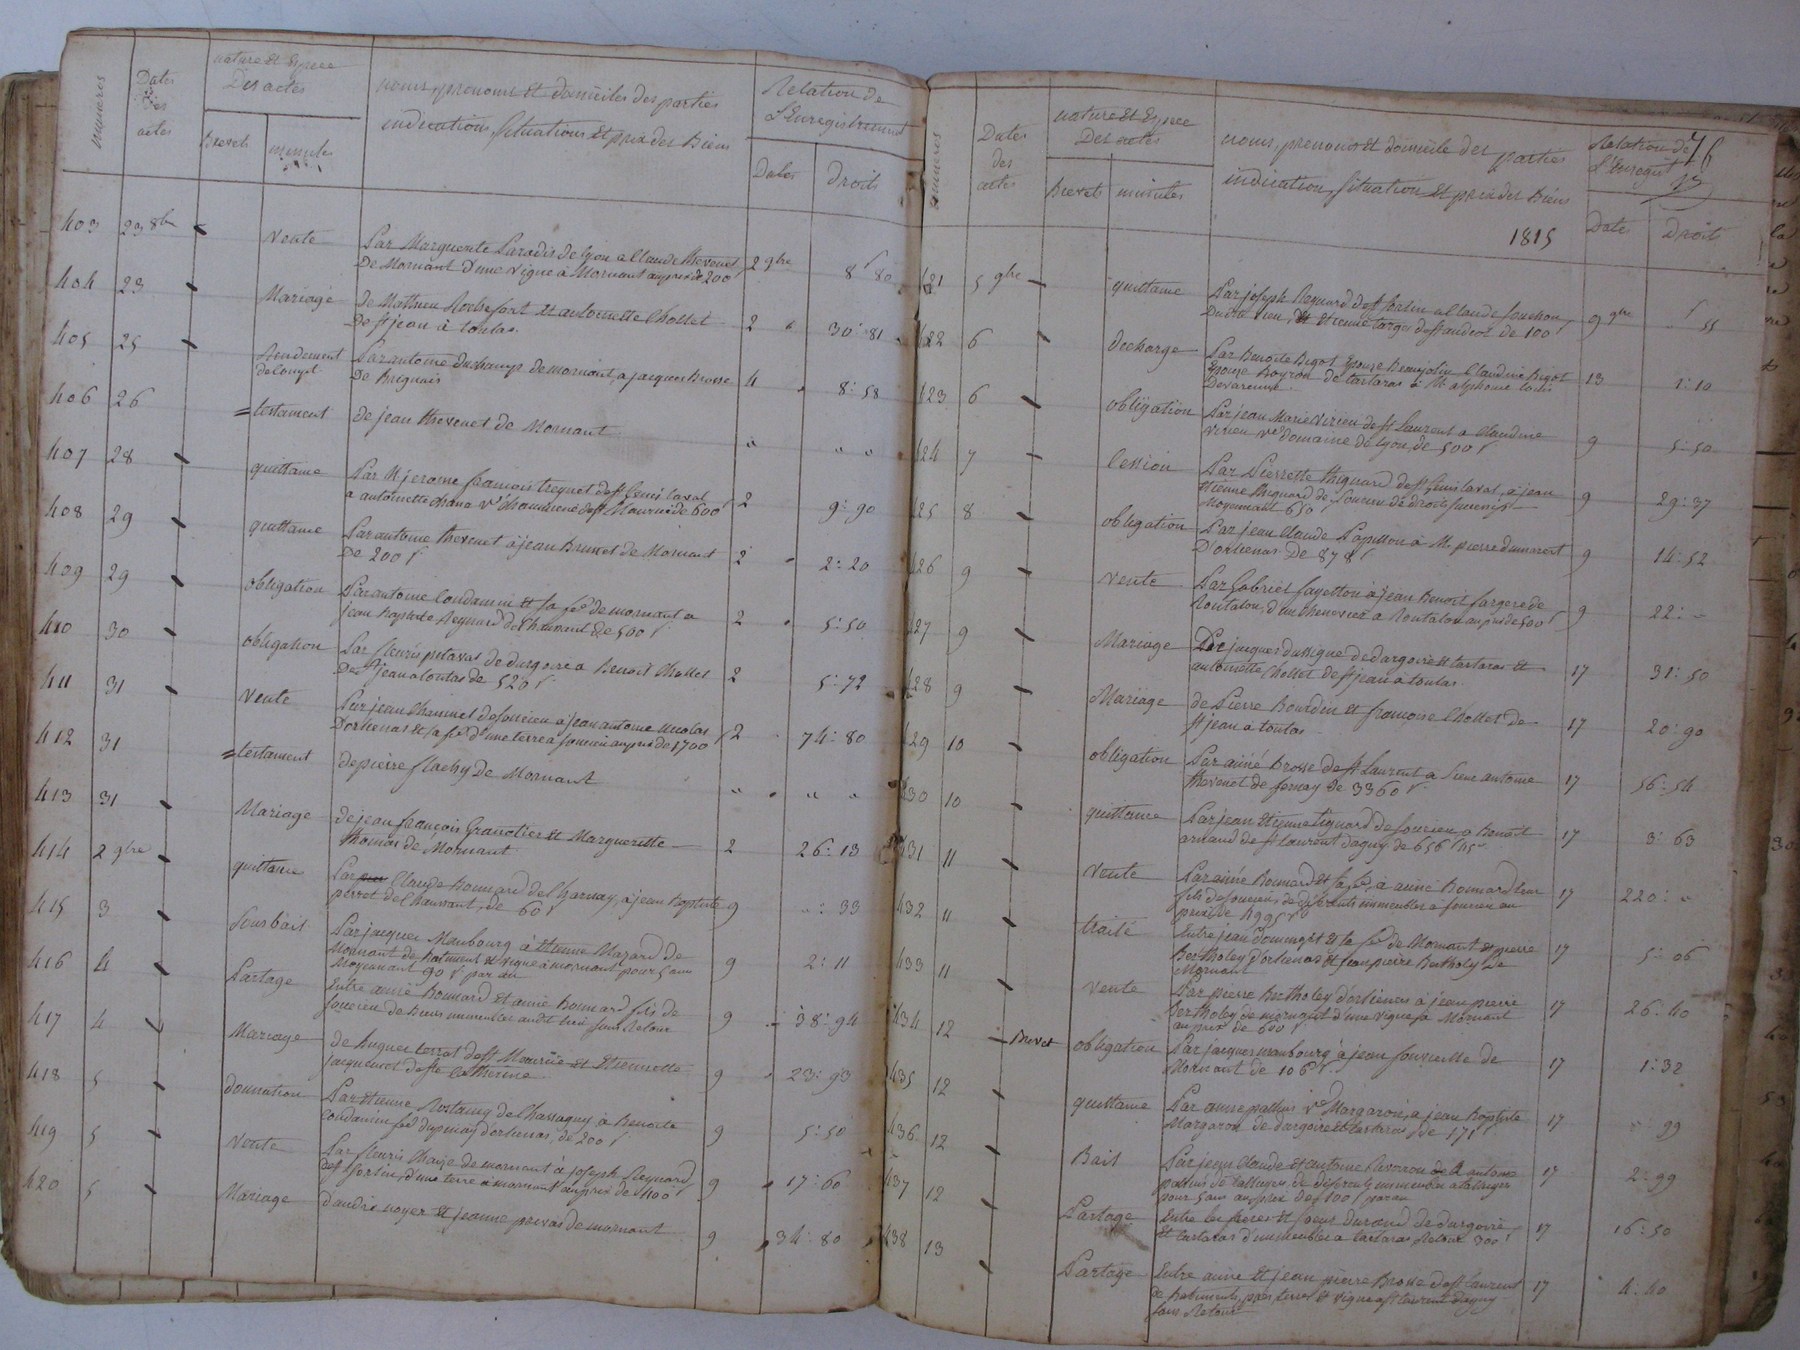 numeros
Dates
des
actes
nature et Espece
Des actes
Brevets
minutes
noms, prenoms et domiciles des parties
indications, Situations et prix des Biens
Relation de
L'Enregistrement
Dates
droits
403 23 8bre vente Par Marguerite Paradis de lyon a Claude thevenet 2 9bre 8f 80
De Mornant d'une vigne a Mornant au prix de 200f
404 23 Mariage de Mathieu Rochefort et antoinette Chollet 2 30: 81
De st jean à toulas
405 25 Rendement Par antoine Duchamp de mornant, a jacques Brosse 4 8: 58
de Compt De Brignais
406 26 testament de jean thevenet de Mornant
407 28 quittance Par Mr jerome francois treynet de st Genis laval 2 9: 90
a antoinette chana ve de st Maurice de 600f
408 29 quittance Par antoine thevenet à jean Brunet de Mornant 2 2: 20
De 200f
409 29 obligation Par antoine Condamin et sa fe de mornant a 2 5: 50
jean Baptiste Reynard de Chaussant de 500f
410 30 obligation Par fleuris pitaval de dargoire a Benoit Chollet 2 5: 72
De st jean a toulas de 520f
411 31 vente Par jean Chaumel de soucieu a jean antoine nicolas 2 74: 80
D'orlienas et sa fe d'une terre a soucieu au prix de 1700f
412 31 testament de pierre flachy de Mornant
413 31 Mariage de jean francois Granotier et Marguerite 2 26: 13
thomas de Mornant
414 2 9bre quittance Par Claude Bonnard de Charnay, a jean Baptiste 9 : 33
perret de Chaussant, de 60f
415 3 Sousbail Par jacques Maubourg à Etienne Mazard de 9 2: 11
Mornant de batiment et vigne a mornant pour 5 ans
Moyennant 90f par an
416 4 Partage Entre aimé Bonnard et aimé Bonnard fils de 9 38: 94
soucieu de Biens immeubles audit lieu sans Retour
417 4 Mariage de hugues terrat de st Maurice et Etiennette 9 23: 93
jacquenot de ste Catherine
418 5 donnation Par Etienne Rostaing de Chassagny à Benoite 9 5: 50
condamin fe dupinay d'orlienas, de 200f
419 5 vente Par fleuris Chaize de mornant à joseph Reynard 9 17: 60
de st Sorlin, d'une terre a mornant au prix de 400f
420 5 Mariage d'andré noyer et jeanne privas de mornant 9 34: 80
76
numeros
Dates
des
actes
nature et Espece
Des actes
Brevets
minutes
noms, prenoms et domicile des parties
indication, Situation et prix des Biens
Relation de
L'Enregist
Date
Droits
1815
421 5 9bre quittance Par joseph Reynard de st Sorlin a Claude souchon 9 9bre 55
Dudit lieu, et Etienne targe de st andeol de 100f
422 6 decharge Par Benoite Bigot Epouse Beaujolin Claudine Bigot 13 1: 10
Epouse Boyron de tartaras à Mr alphonse louis
Devarenne
423 6 obligation Par jean Marie virieu de st laurent a Claudine 9 5: 50
virieu ve domaine de lyon, de 500f
424 7 Cession Par Pierrette thiguard de st Genis laval, a jean 9 29: 37
Etienne thiguard de soucieu de droits successifs
Moyennant 650f
425 8 obligation Par jean Claude Papillon à Mr pierre dumarest 9 14: 52
D'orlienas De 878f
426 9 vente Par Gabriel fayetton à jean Benoit fargere de 9 22:
Rontalon, d'un chenevier a Rontalon au prix de 500f
427 9 Mariage De jacques dussigne de dargoire et tartaras et 17 31: 50
antoinette Chollet de st jean a toulas
428 9 Mariage de Pierre Bourdin et francoise Chollet de 17 20: 90
st jean a toulas
429 10 obligation Par aimé Brosse de st laurent a Sieur antoine 17 56: 54
thevenet de fernay De 3360f
430 10 quittance Par jean Etienne tiguard de soucieu, a Benoit 17 3: 63
arnaud de st laurent dagny de 656f 45
431 11 vente Par aimé Bonnard et sa fe, à aimé Bonnard leur 17 220:
fils de soucieu de differents immeubles a soucieu au
prix de 4995f
432 11 traité Entre jean Domenget et sa fe de Mornant et pierre 17 5: 06
Bertholey d'orlienas et jean pierre Bertholey De
Mornant
433 11 vente Par pierre Bertholey d'orlienas à jean pierre 17 26: 40
Bertholey de mornant d'une vigne a Mornant
au prix de 600f
434 12 Brevet obligation Par jacques maubourg à jean fonvieille de 17 1: 32
Mornant de 106f
435 12 quittance Par anne pathus ve Margaron, a jean Baptiste 17 99
Margaron de dargoire et tartaras, de 171f
436 12 Bail Par jean Claude et antoine Caverou de à antoine 17 2: 99
pathus de talluyers, de differents immeubles a talluyer
pour 5 ans au prix de 100f par an
437 12 Partage Entre les freres et soeur Durand de dargoire 17 16: 50
et tartaras d'immeubles a tartaras Retour 300f
438 13 Partage Entre aimé et jean pierre Brosse de st laurent 17 4: 40
de batiments, prés, terres et vigne a st laurent dagny
sans Retour